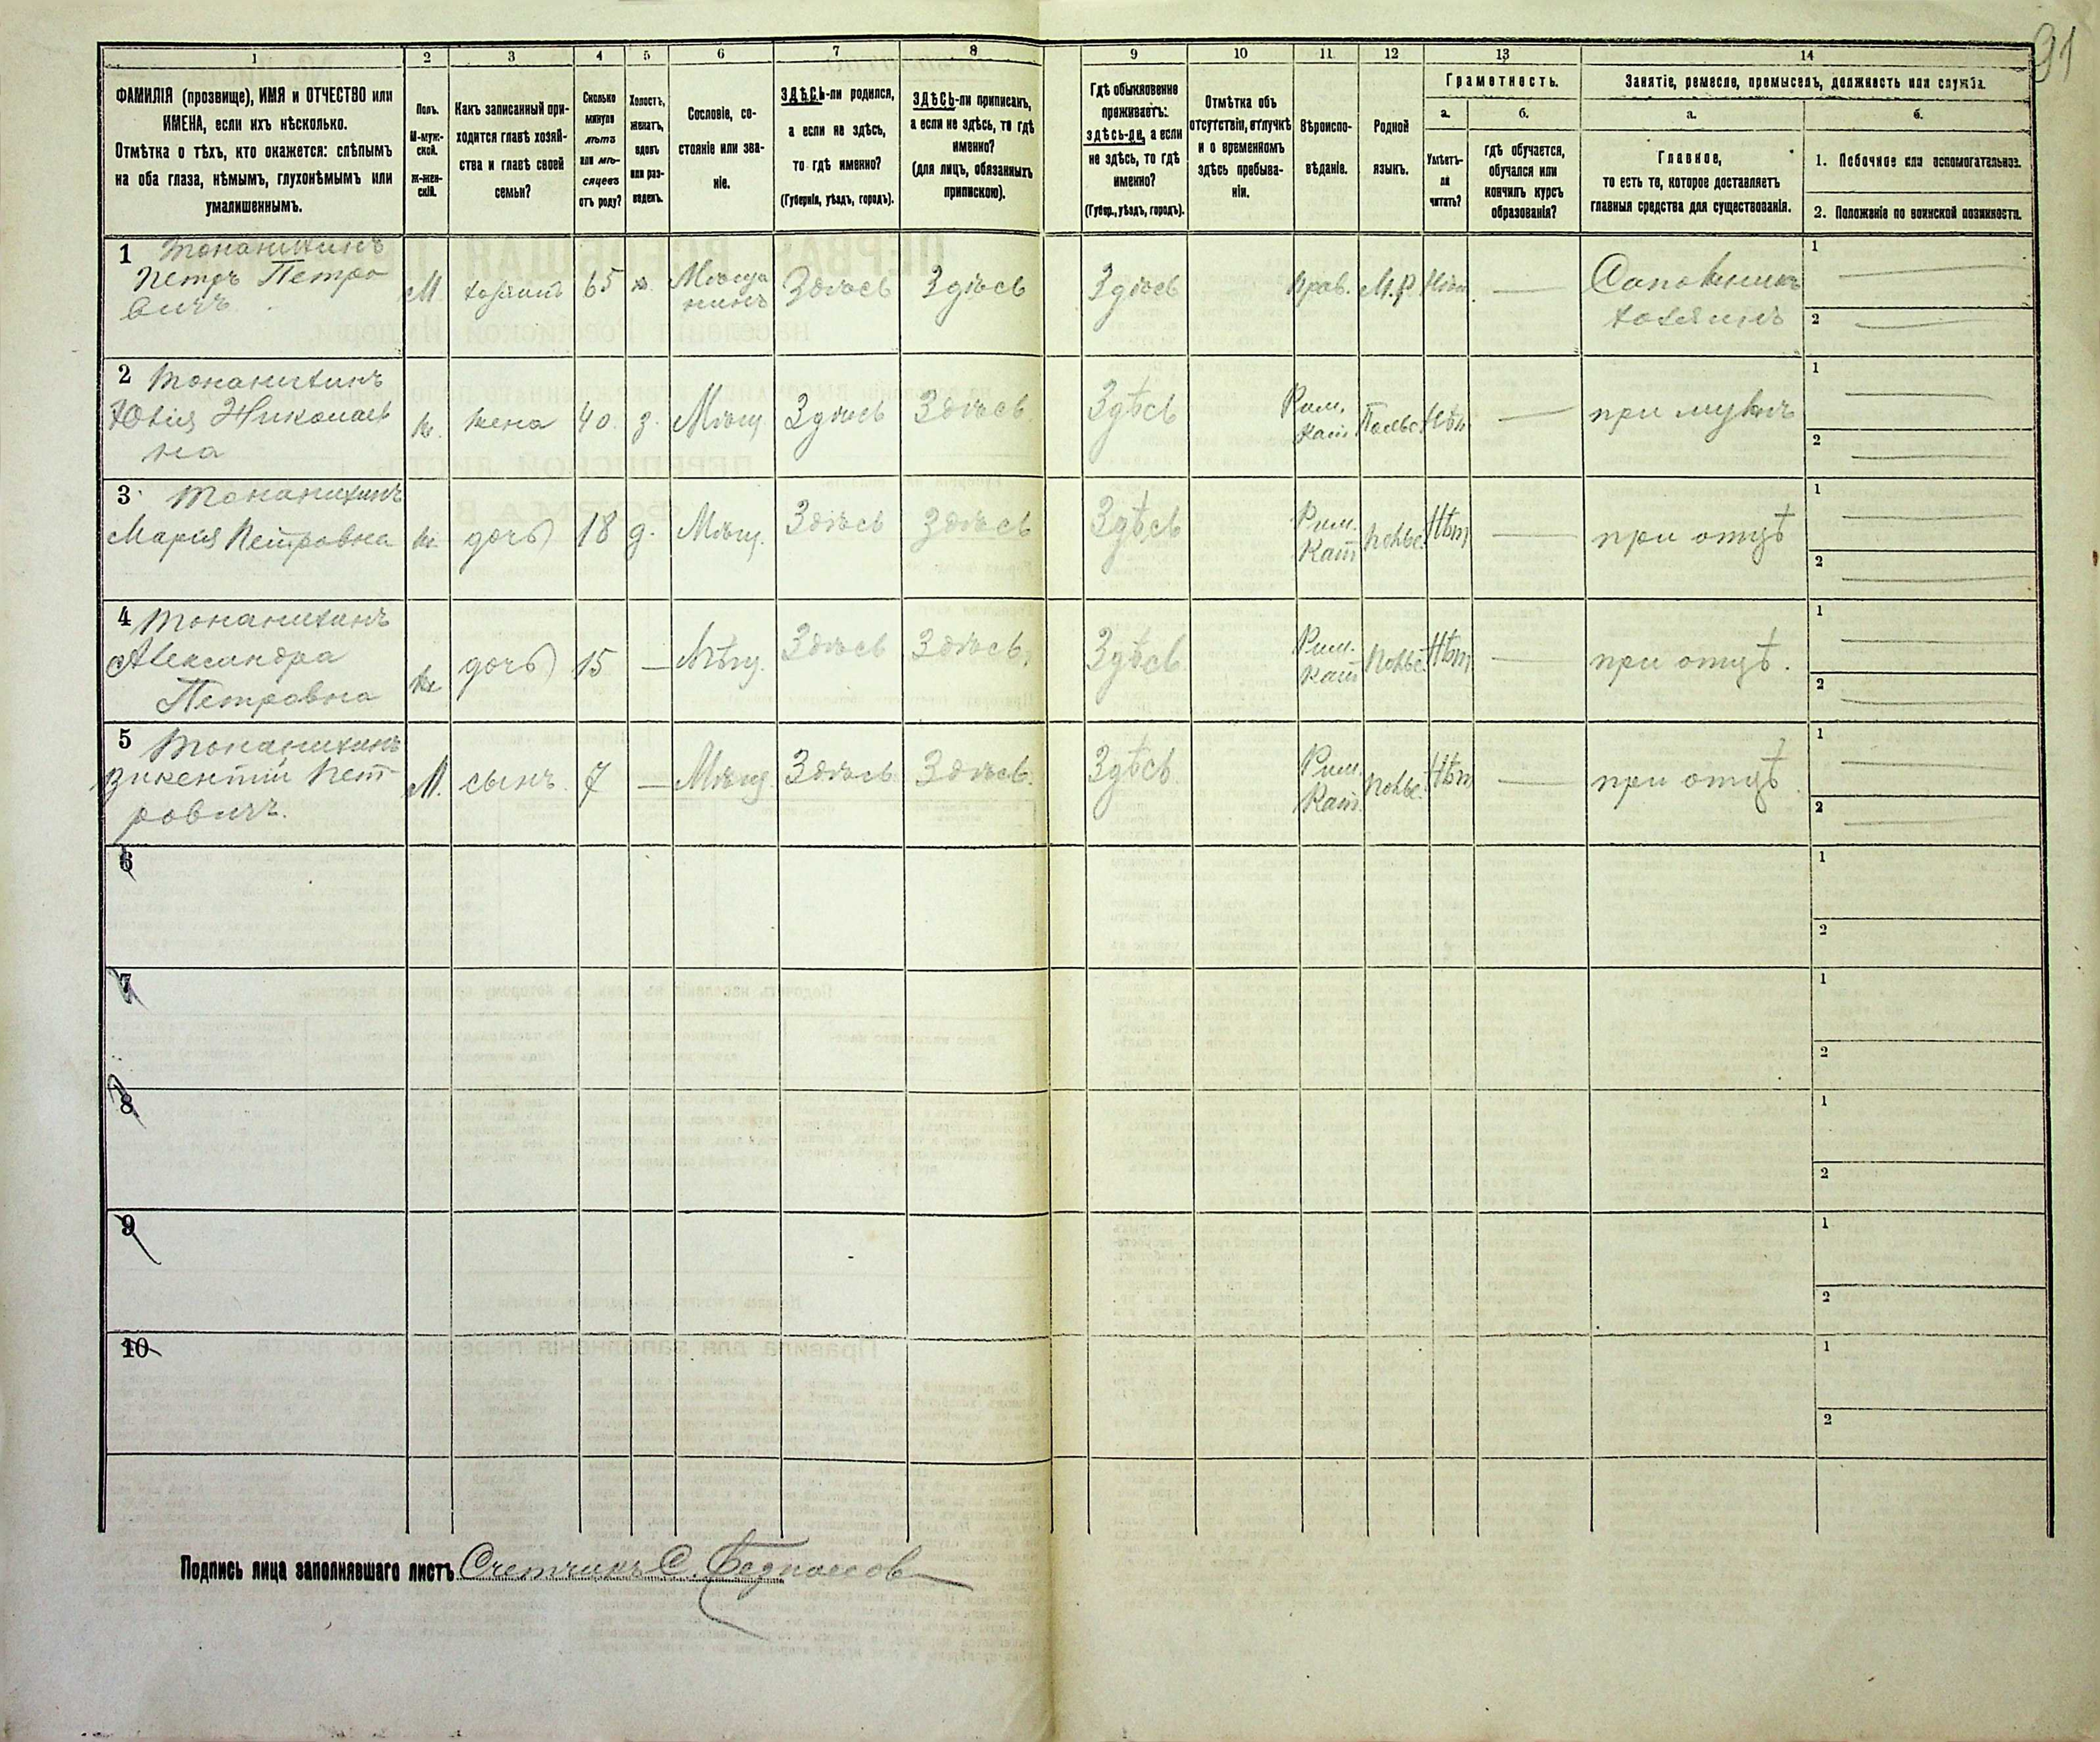 91
1
2
3
4
5
6
7
8
9
10
11
12
13
14
ФАМИЛІЯ (прозвище), ИМЯ и ОТЧЕСТВО или
ИМЕНА, если ихъ нѣсколько.
Отмѣтка о тѣхъ, кто окажется: слѣпымъ
на оба глаза, нѣмымъ, глухонѣмымъ или
умалишеннымъ.
Полъ.
М-муж-
ской.
ж-жен-
скій.
Какъ записанный при-
ходится главѣ хозяй-
ства и главѣ своей
семьи?
Сколько
минуло
лѣтъ
или мѣ-
сяцевъ
отъ роду?
Холостъ,
женатъ,
вдовъ
или раз-
веденъ.
Сословіе, со-
стояніе или зва-
ніе.
ЗДѢСЬ-ли родился,
а если не здѣсь,
то гдѣ именно?
(Губернія, уѣздъ, городъ).
ЗДѢСЬ-ли приписанъ,
а если не здѣсь, то гдѣ
именно?
(для лицъ, обязанныхъ
припискою).
Гдѣ обыкновенно
проживаетъ:
здѣсь-ли, а если
не здѣсь, то гдѣ
именно?
(Губер., уѣздъ, городъ).
Отмѣтка объ
отсутствіи, отлучкѣ
и о временномъ
здѣсь пребыва-
ніи.
Вѣроиспо-
вѣданіе.
Родной
языкъ.
Грамотность.
а.
б.
Умѣетъ-
ли
читать?
гдѣ обучается,
обучался или
кончилъ курсъ
образованія?
Занятіе, ремесло, промыселъ, должность или служба.
а.
б.
Главное,
то есть то, которое доставляетъ
главныя средства для существованія.
1. Побочное или вспомогательное.
2. Положеніе по воинской повинности.
1
Петръ Петро
вичъ
М хозяинъ 65 ж. Мѣща
нинъ Здѣсь Здѣсь Здѣсь Прав. М.Р. Нѣт — Сапожникъ
хозяинъ
1 —
2 —
2
Юлія Николаев
на
ж. жена 40 з. Мѣщ Здѣсь Здѣсь Здѣсь Рим.
Кат. Польс. Нѣт — при мужѣ
1 —
2 —
3
Марія Петровна ж. дочь 18 д. Мѣщ. Здѣсь Здѣсь Здѣсь Рим.
Кат Польс. Нѣт — при отцѣ
1 —
2 —
4
Александра
Петровна
ж. дочь 15 — Мѣщ. Здѣсь Здѣсь, Здѣсь Рим.
Кат Польс. Нѣт — при отцѣ.
1 —
2 —
5
Викентій Пет
ровичъ.
М. сынъ. 7 — Мѣщ. Здѣсь Здѣсь. Здѣсь. Рим.
Кат. Польс. Нѣт — при отцѣ.
1 —
2 —
6
1
2
7
1
2
8
1
2
9
1
2
10
1
2
Подпись лица заполнявшаго листъ Счетчикъ С.